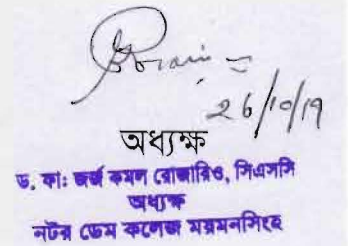 26/10/19
অধ্যক্ষ
ড. ফাঃ জর্জ কমল রোজারিও, সিএসসি
অধ্যক্ষ
নটর ডেম কলেজ ময়মনসিংহ